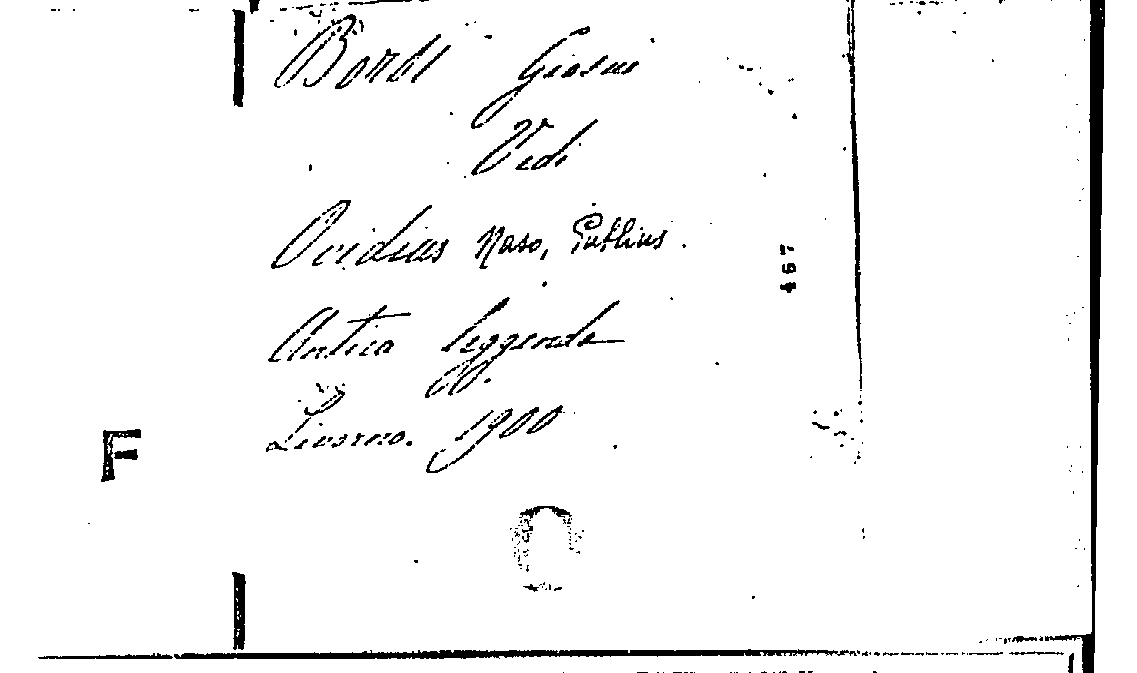 Borsi Giosuè
Vedi
Ovidius Naso, Publius.
Antica leggenda
Livorno. 1900
467
F